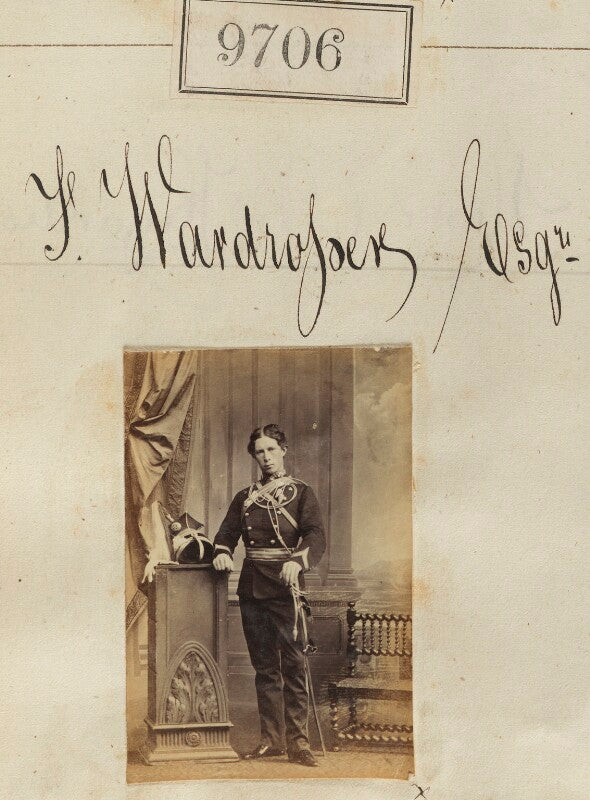 9706
F. Wardroper Esqre